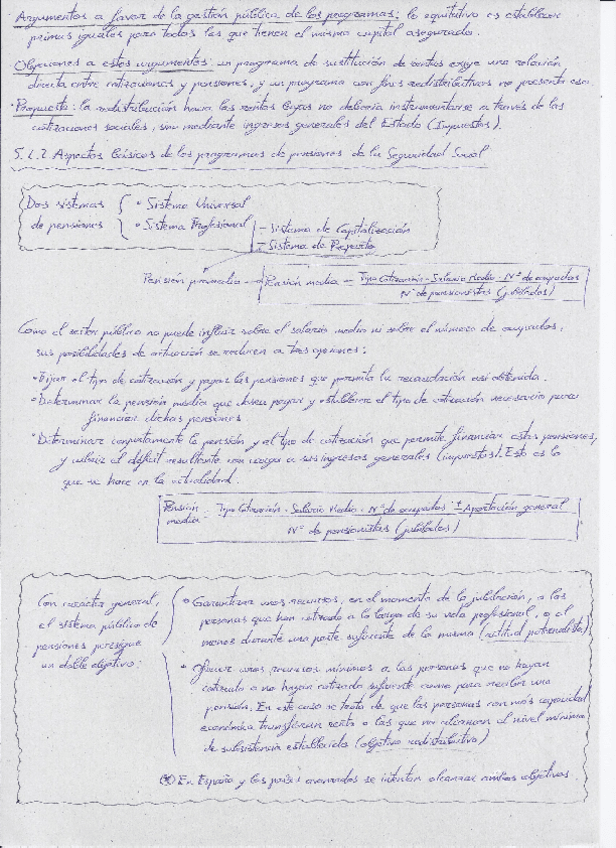 Argumentos a favor de la gestión pública de los programas: lo equitativo es establecer
primas iguales para todos los que tienen el mismo capital asegurado.
Objeciones a estos argumentos: un programa de sustitución de rentas exige una relación
directa entre cotizaciones y pensiones, y un programa con fines redistributivos no presenta esa.
Propuesta: la redistribución hacia las rentas bajas no debería instrumentarse a través de las
cotizaciones sociales, sino mediante ingresos generales del Estado (Impuestos).
5.2.2. Aspectos básicos de los programas de pensiones de la Seguridad Social
Dos sistemas de pensiones
• Sistema Universal
• Sistema Profesional
- Sistema de Capitalización
- Sistema de Reparto
Pensión promedio - Pensión media = Tipo Cotización · Salario Medio · Nº de ocupados
Nº de pensionistas (jubilados)
Como el sector público no puede influir sobre el salario medio ni sobre el número de ocupados,
sus posibilidades de actuación se reducen a tres opciones:
• Fijar el tipo de cotización y pagar las pensiones que permita la recaudación así obtenida.
• Determinar la pensión media que desea pagar y establecer el tipo de cotización necesario para
financiar dichas pensiones
• Determinar conjuntamente la pensión y el tipo de cotización que permite financiar estas pensiones,
y cubrir el déficit resultante con cargo a sus ingresos generales (impuestos). Esto es lo
que se hace en la actualidad.
Pensión media = Tipo Cotización · Salario Medio · Nº de ocupados ± Aportación general
Nº de pensionistas (jubilados)
Con carácter general,
el sistema público de
pensiones persigue
un doble objetivo:
• Garantizar unos recursos, en el momento de la jubilación, a las
personas que han cotizado a lo largo de su vida profesional, o al
menos durante una parte suficiente de la misma
• Ofrecer unos recursos mínimos a las personas que no hayan
cotizado o no hayan cotizado suficiente como para recibir una
pensión. En este caso se trata de que las personas con más capacidad
económica transfieran renta a las que no alcanzan el nivel mínimo
de subsistencia establecido (objetivo redistributivo)
(*) En España y los países avanzados se intentan alcanzar ambos objetivos.